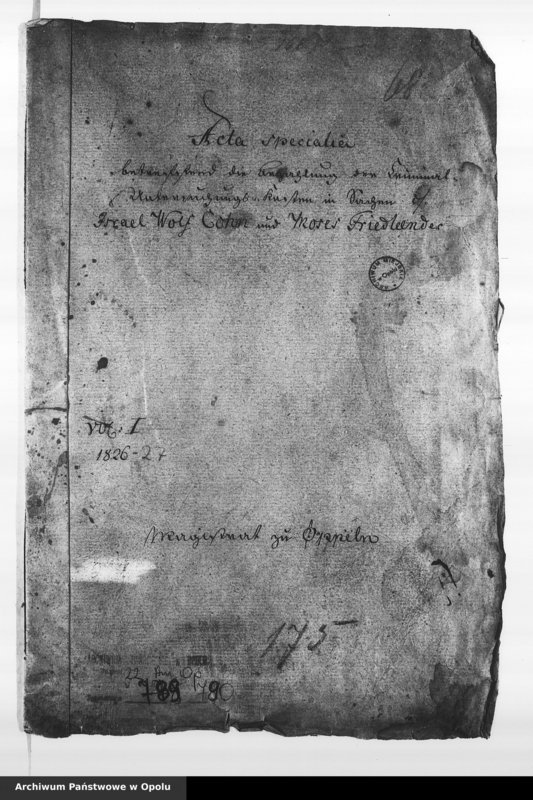 68
Acta specialia
betreffend die Bezahlung der Criminal-
Untersuchungs-Kosten in Sachen c/
Israel Wolf Cohn und Moses Friedlaender
Vol. I
1826-27
Magistrat zu Oppeln
175
22
789
Archiwum Państwowe w Opolu